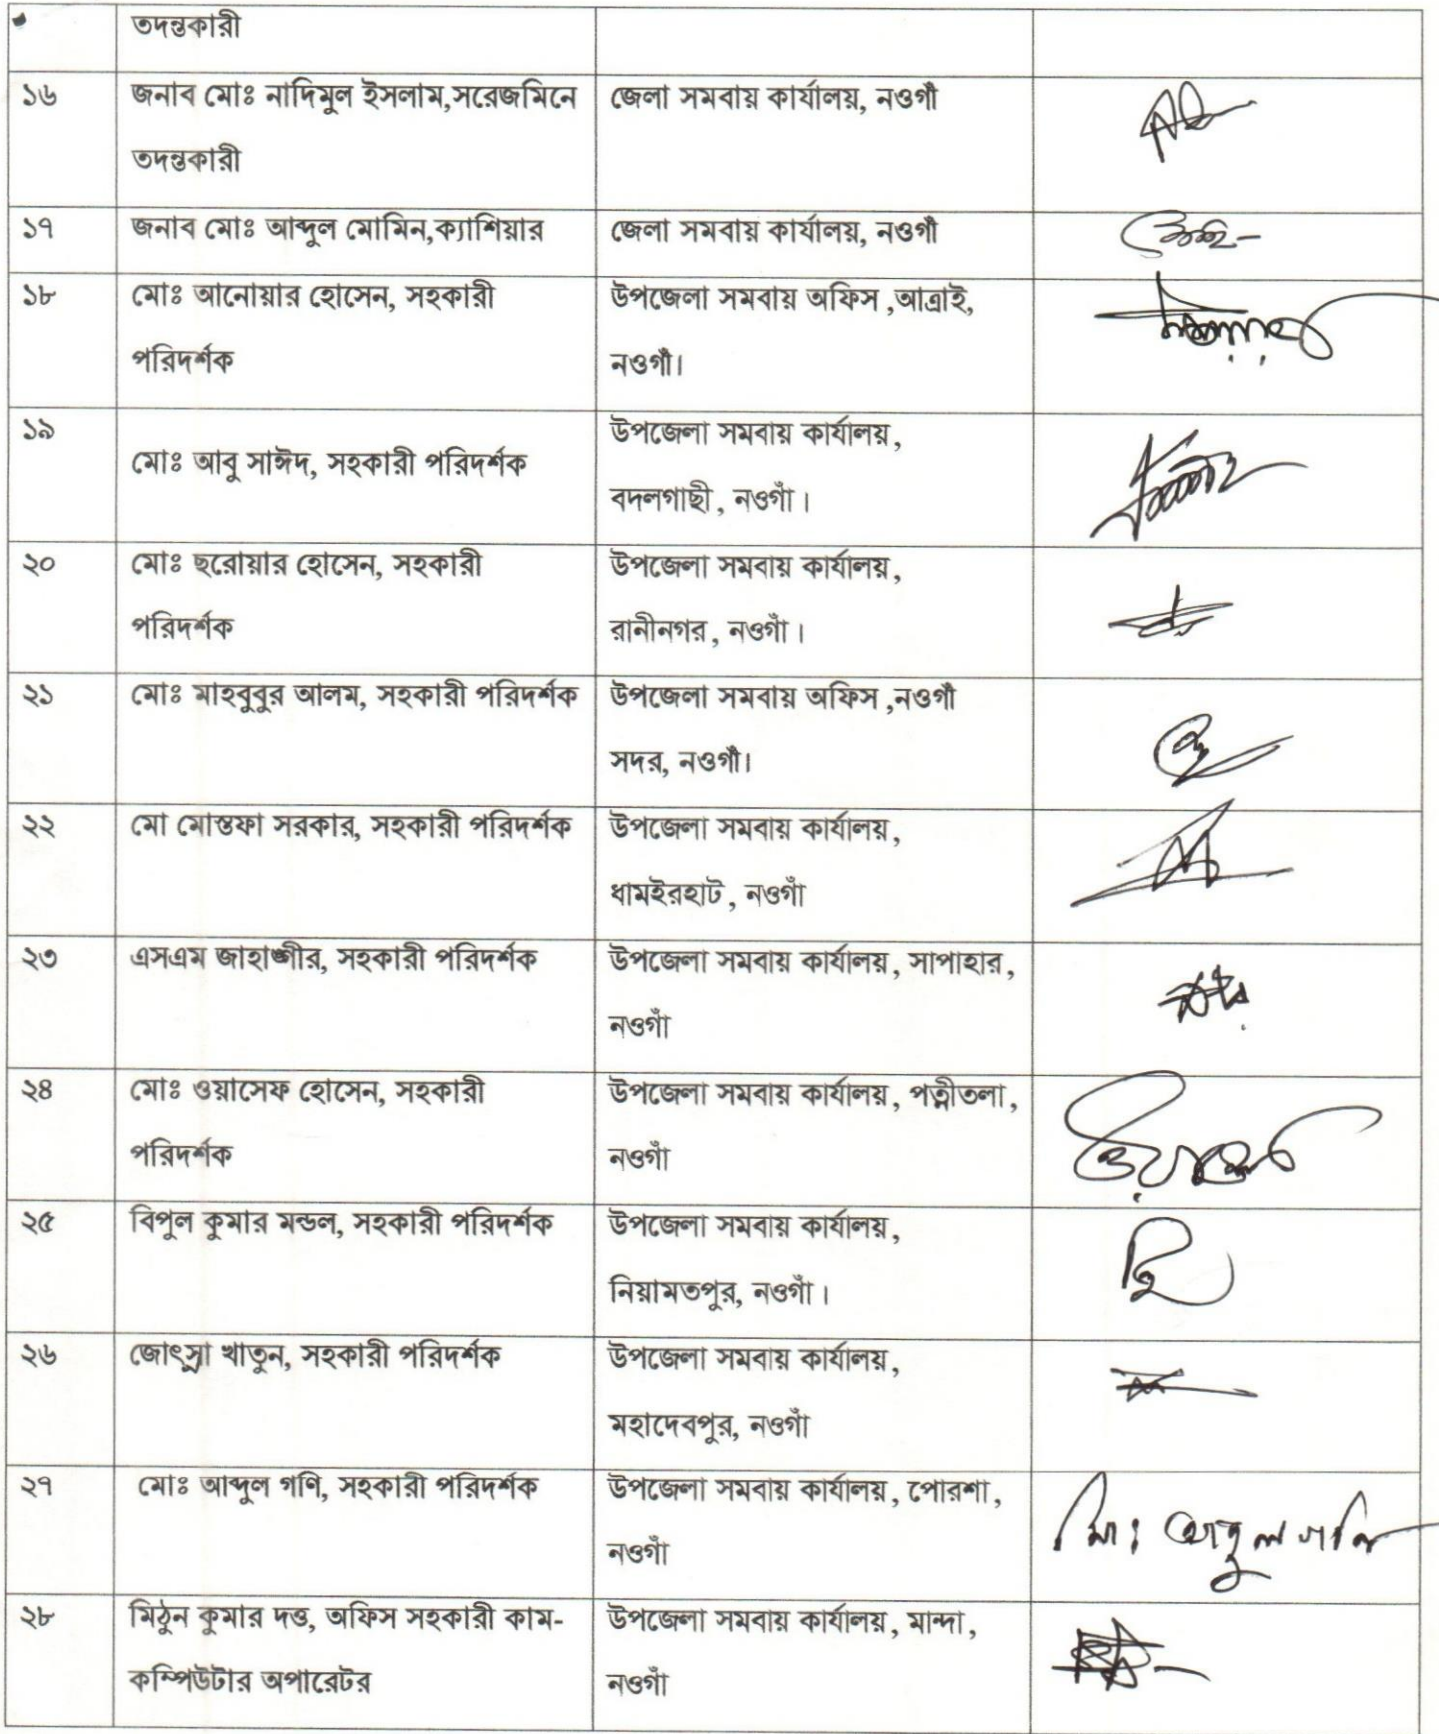 তদন্তকারী
১৬ জনাব মোঃ নাদিমুল ইসলাম,সরেজমিনে জেলা সমবায় কার্যালয়, নওগাঁ
তদন্তকারী
১৭ জনাব মোঃ আব্দুল মোমিন,ক্যাশিয়ার জেলা সমবায় কার্যালয়, নওগাঁ
১৮ মোঃ আনোয়ার হোসেন, সহকারী উপজেলা সমবায় অফিস ,আত্রাই,
পরিদর্শক নওগাঁ।
১৯ উপজেলা সমবায় কার্যালয়,
মোঃ আবু সাঈদ, সহকারী পরিদর্শক
বদলগাছী, নওগাঁ।
২০ মোঃ ছরোয়ার হোসেন, সহকারী উপজেলা সমবায় কার্যালয়,
পরিদর্শক রানীনগর, নওগাঁ।
২১ মোঃ মাহবুবুর আলম, সহকারী পরিদর্শক উপজেলা সমবায় অফিস ,নওগাঁ
সদর, নওগাঁ।
২২ মো মোস্তফা সরকার, সহকারী পরিদর্শক উপজেলা সমবায় কার্যালয়,
ধামইরহাট, নওগাঁ
২৩ এসএম জাহাঙ্গীর, সহকারী পরিদর্শক উপজেলা সমবায় কার্যালয়, সাপাহার,
নওগাঁ
২৪ মোঃ ওয়াসেফ হোসেন, সহকারী উপজেলা সমবায় কার্যালয়, পত্নীতলা,
পরিদর্শক নওগাঁ
২৫ বিপুল কুমার মন্ডল, সহকারী পরিদর্শক উপজেলা সমবায় কার্যালয়,
নিয়ামতপুর, নওগাঁ।
২৬ জোৎস্না খাতুন, সহকারী পরিদর্শক উপজেলা সমবায় কার্যালয়,
মহাদেবপুর, নওগাঁ
২৭ মোঃ আব্দুল গণি, সহকারী পরিদর্শক উপজেলা সমবায় কার্যালয়, পোরশা,
নওগাঁ
২৮ মিঠুন কুমার দত্ত, অফিস সহকারী কাম- উপজেলা সমবায় কার্যালয়, মান্দা,
কম্পিউটার অপারেটর নওগাঁ